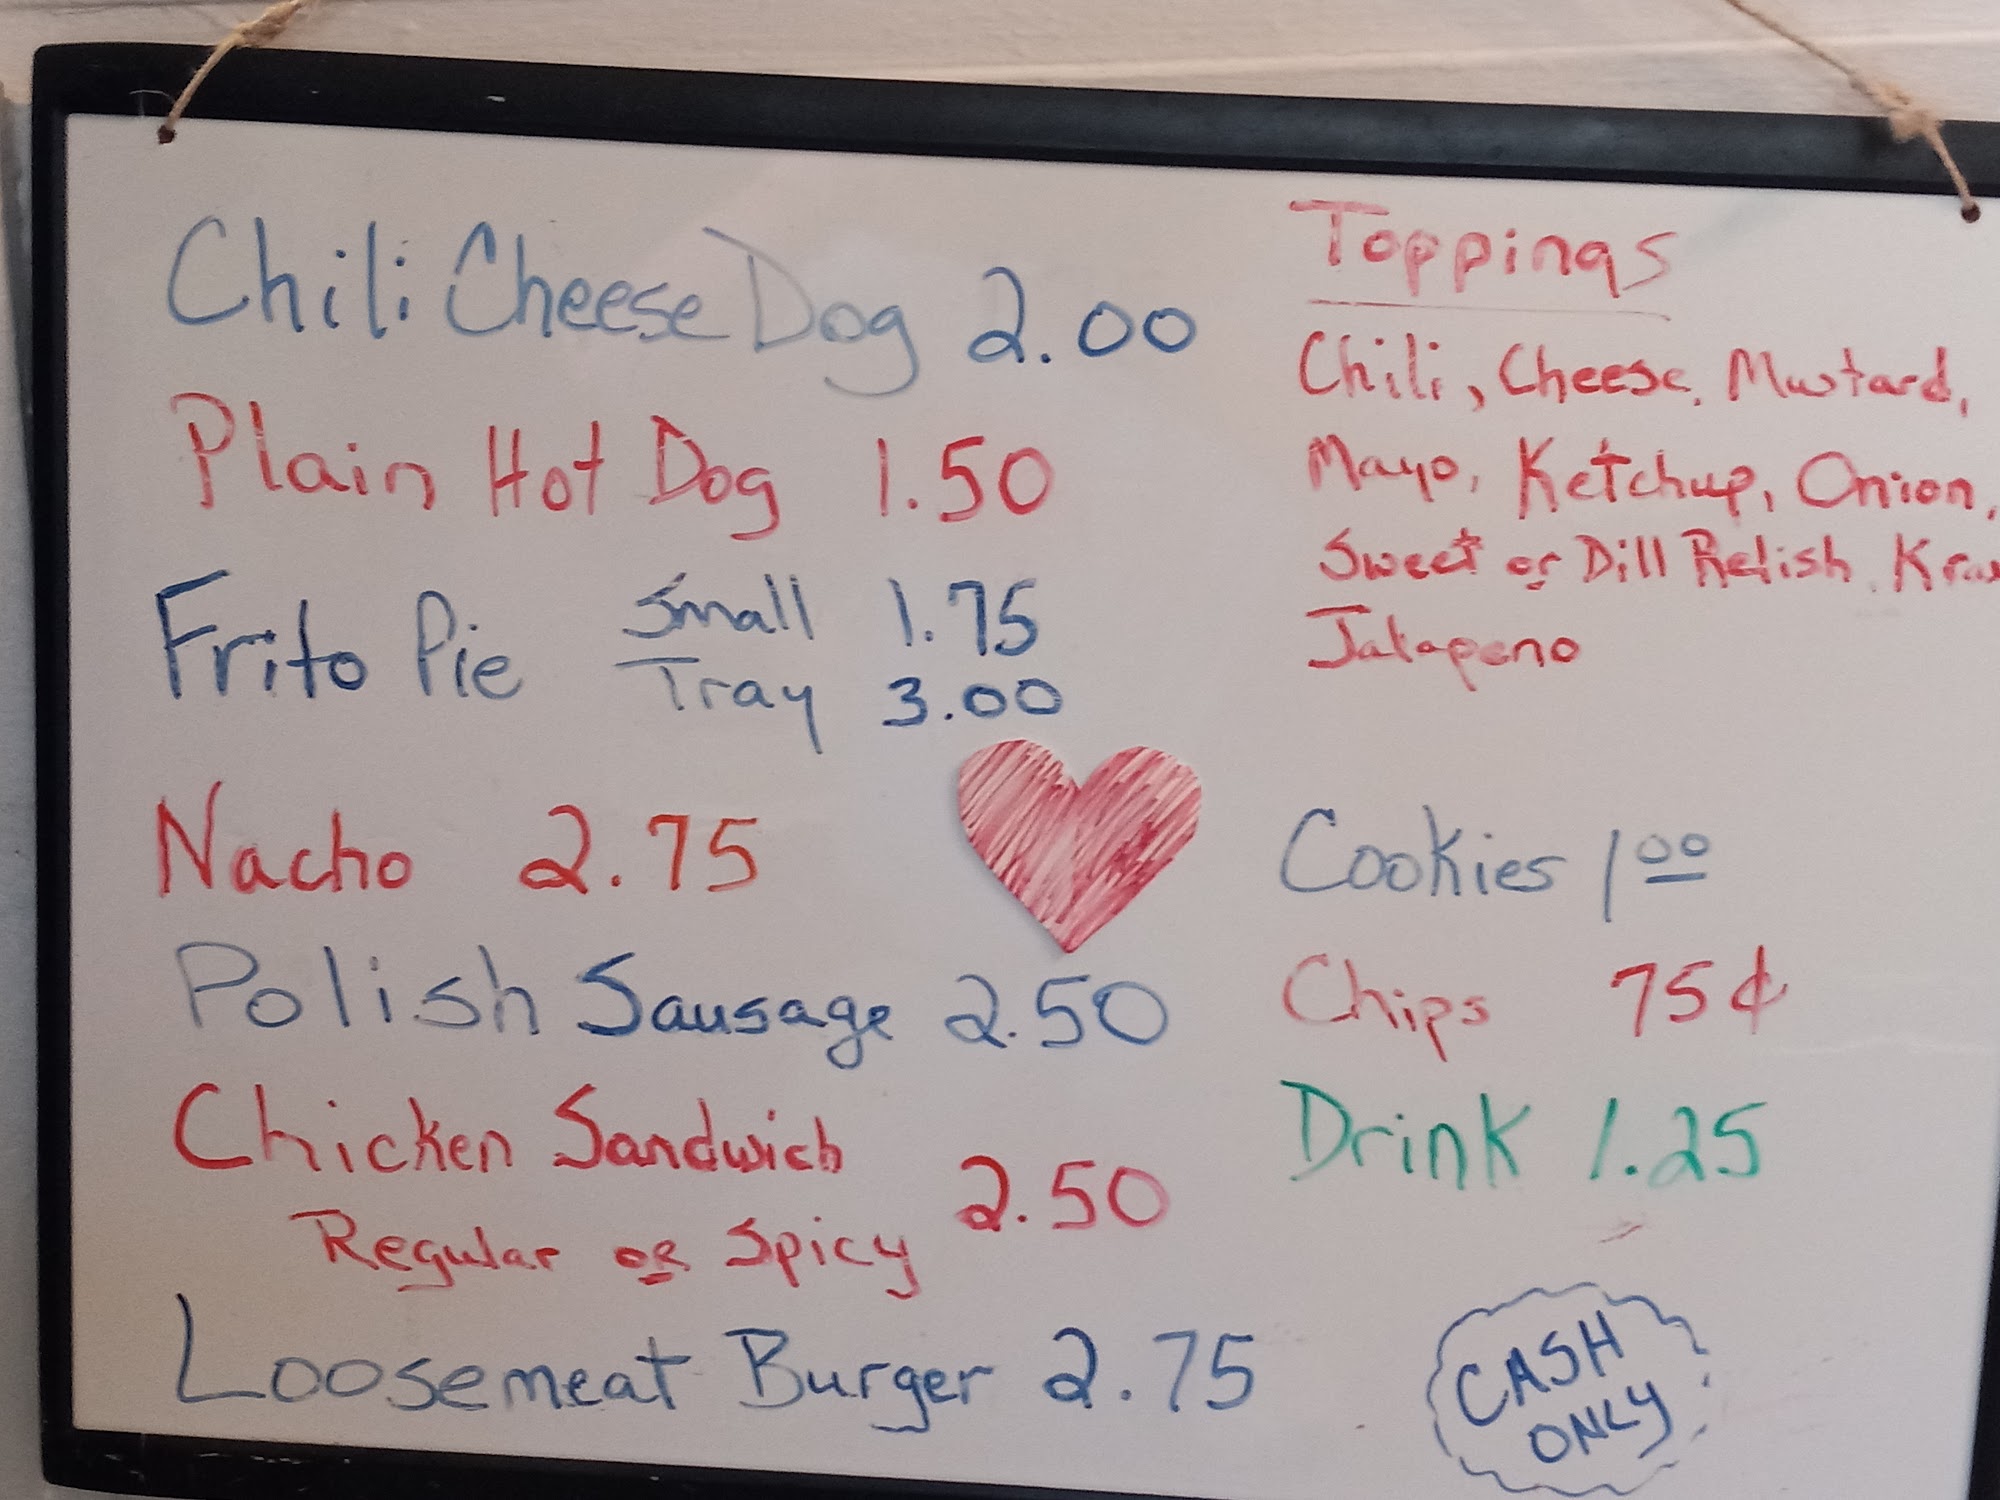 Chili Cheese Dog 2.00
Plain Hot Dog 1.50
Frito Pie Small 1.75
Tray 3.00
Nacho 2.75
Polish Sausage 2.50
Chicken Sandwich
Regular or Spicy 2.50
Loosemeat Burger 2.75
Toppings
Chili, Cheese, Mustard,
Mayo, Ketchup, Onion,
Sweet or Dill Relish, 
Jalapeno
Cookies 1 00
Chips 75¢
Drink 1.25
CASH
ONLY